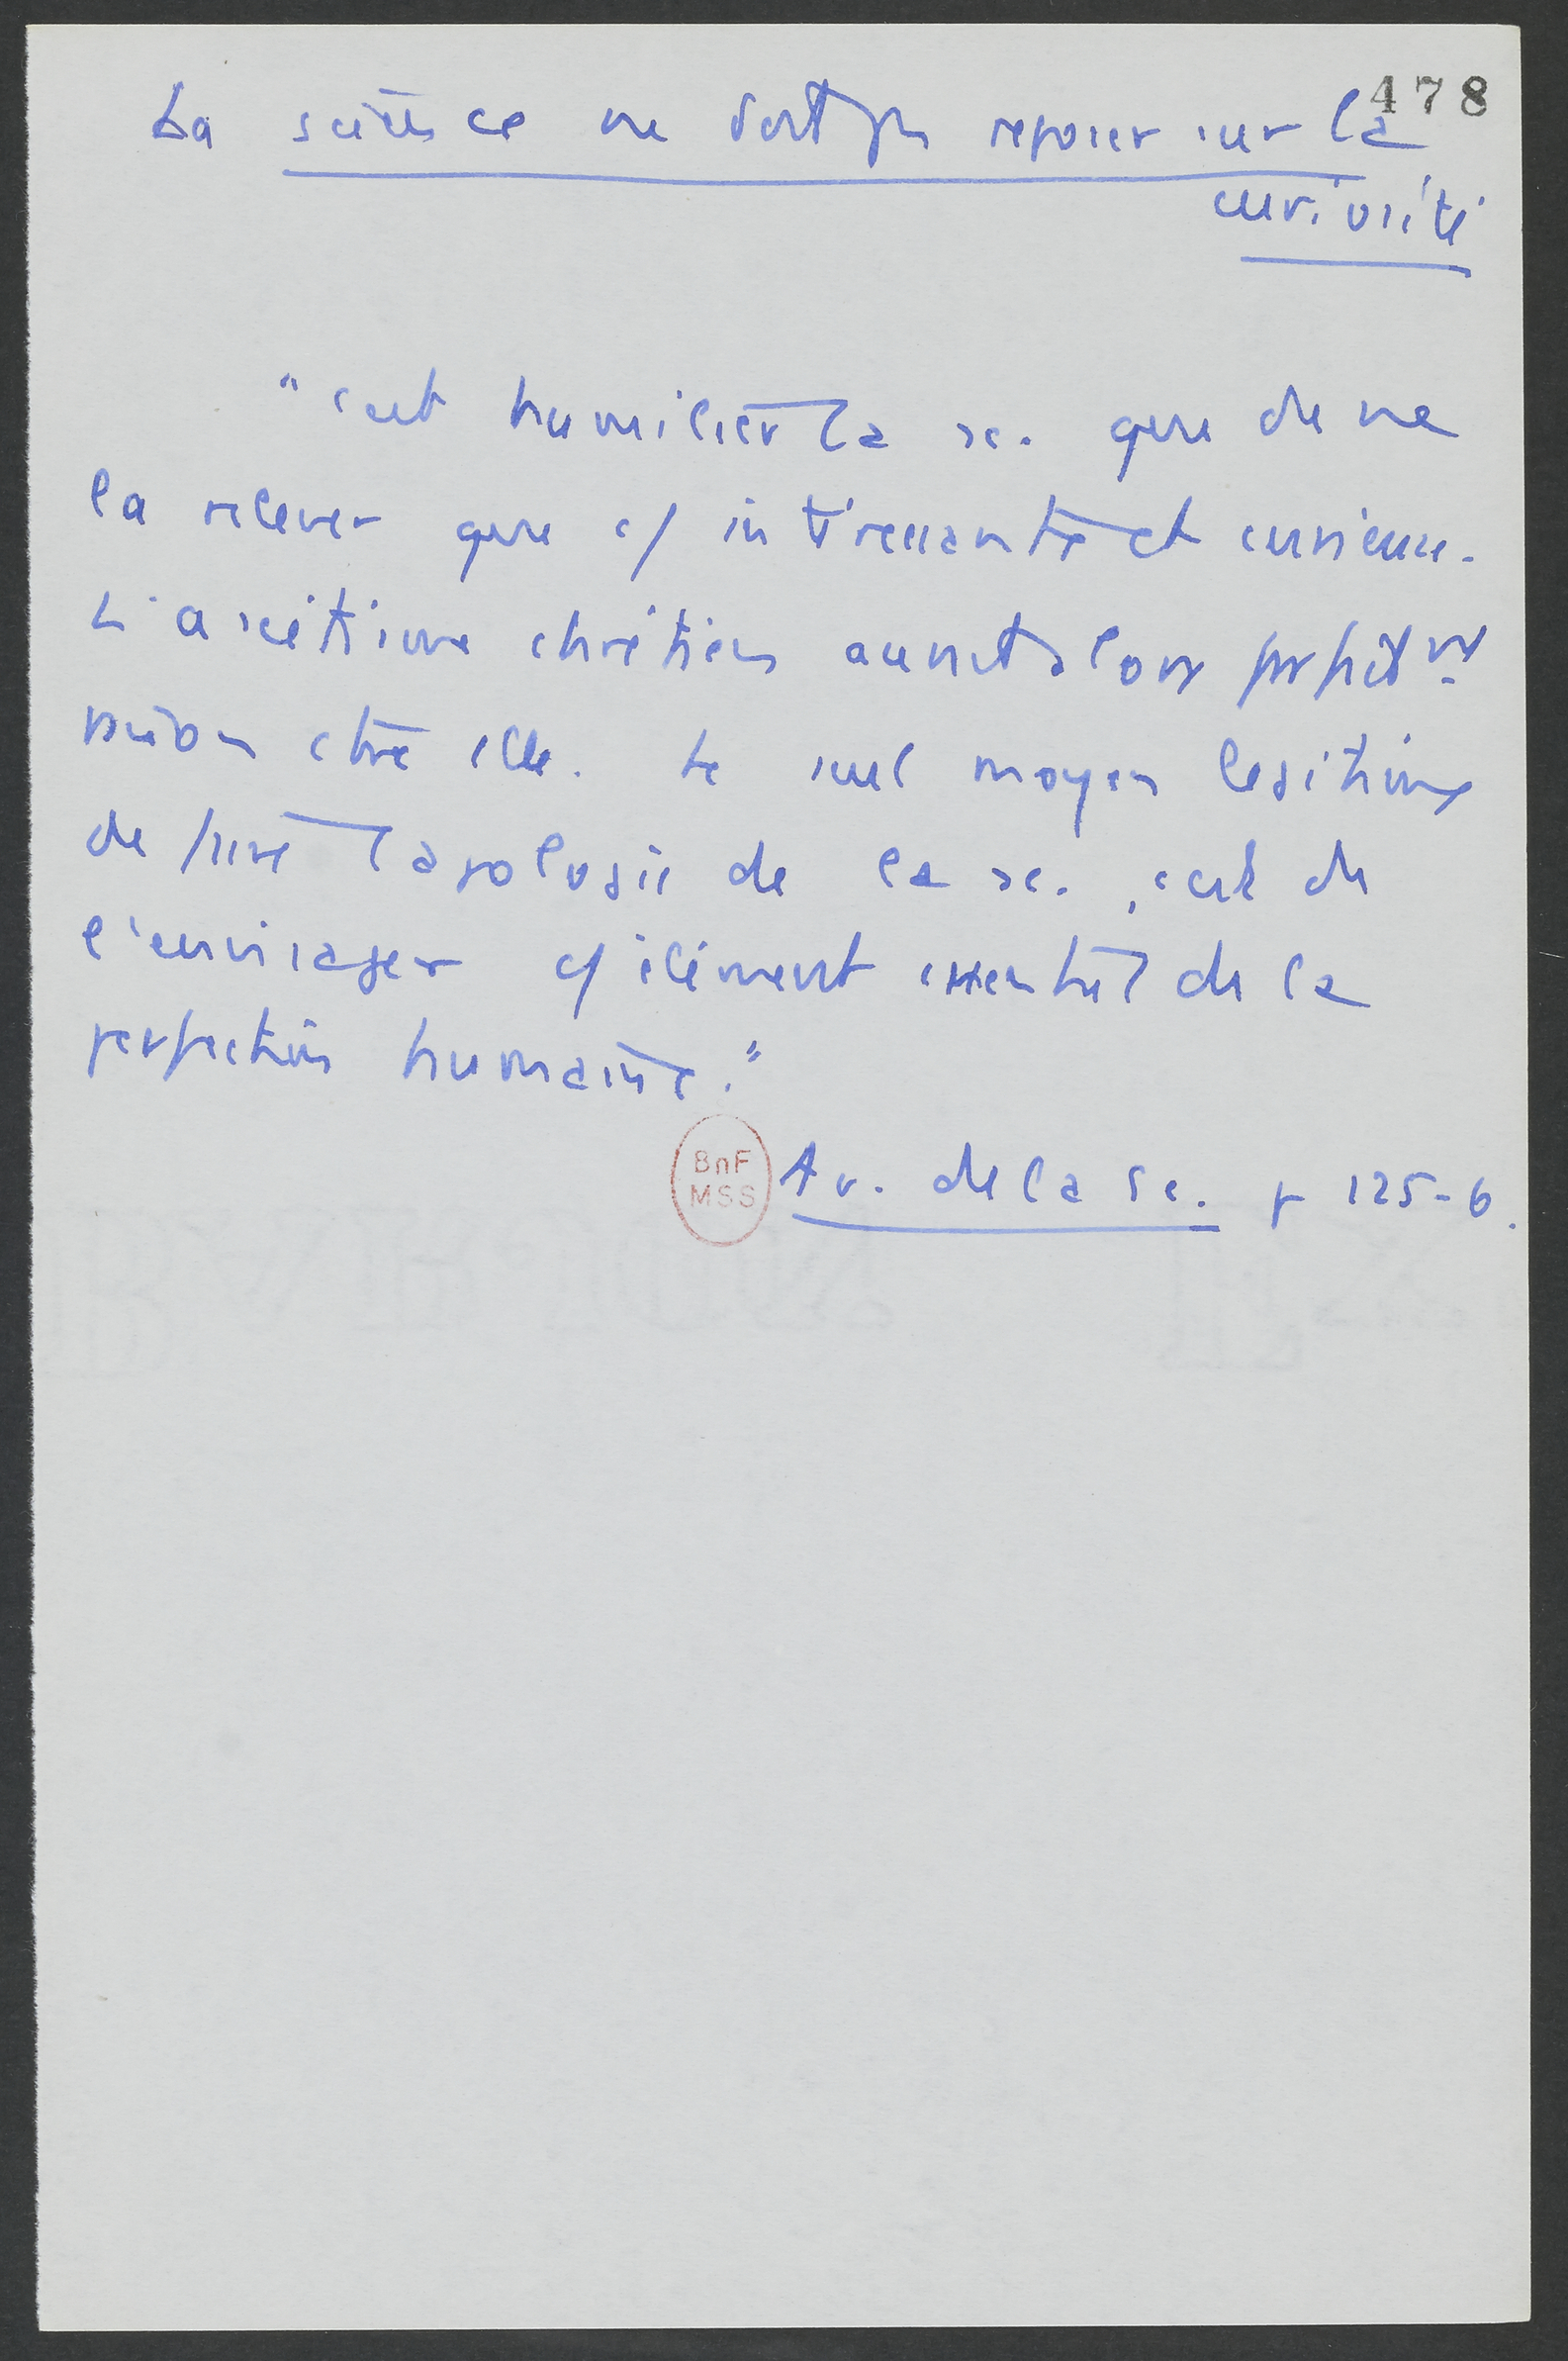 478
La science ne doit pas reposer sur la
curiosité
"c'est humilier la sc. que de ne
la relever que c/ intéressante et curieuse.
L'ascétisme chrétien aurait alors
raison contre elle. Le seul moyen légitime
de faire l'apologie de la sc., c'est de
l'envisager c/ élément essentiel de la
perfection humaine."
BnF
MSS
Av. de la Sc. p 125-6.